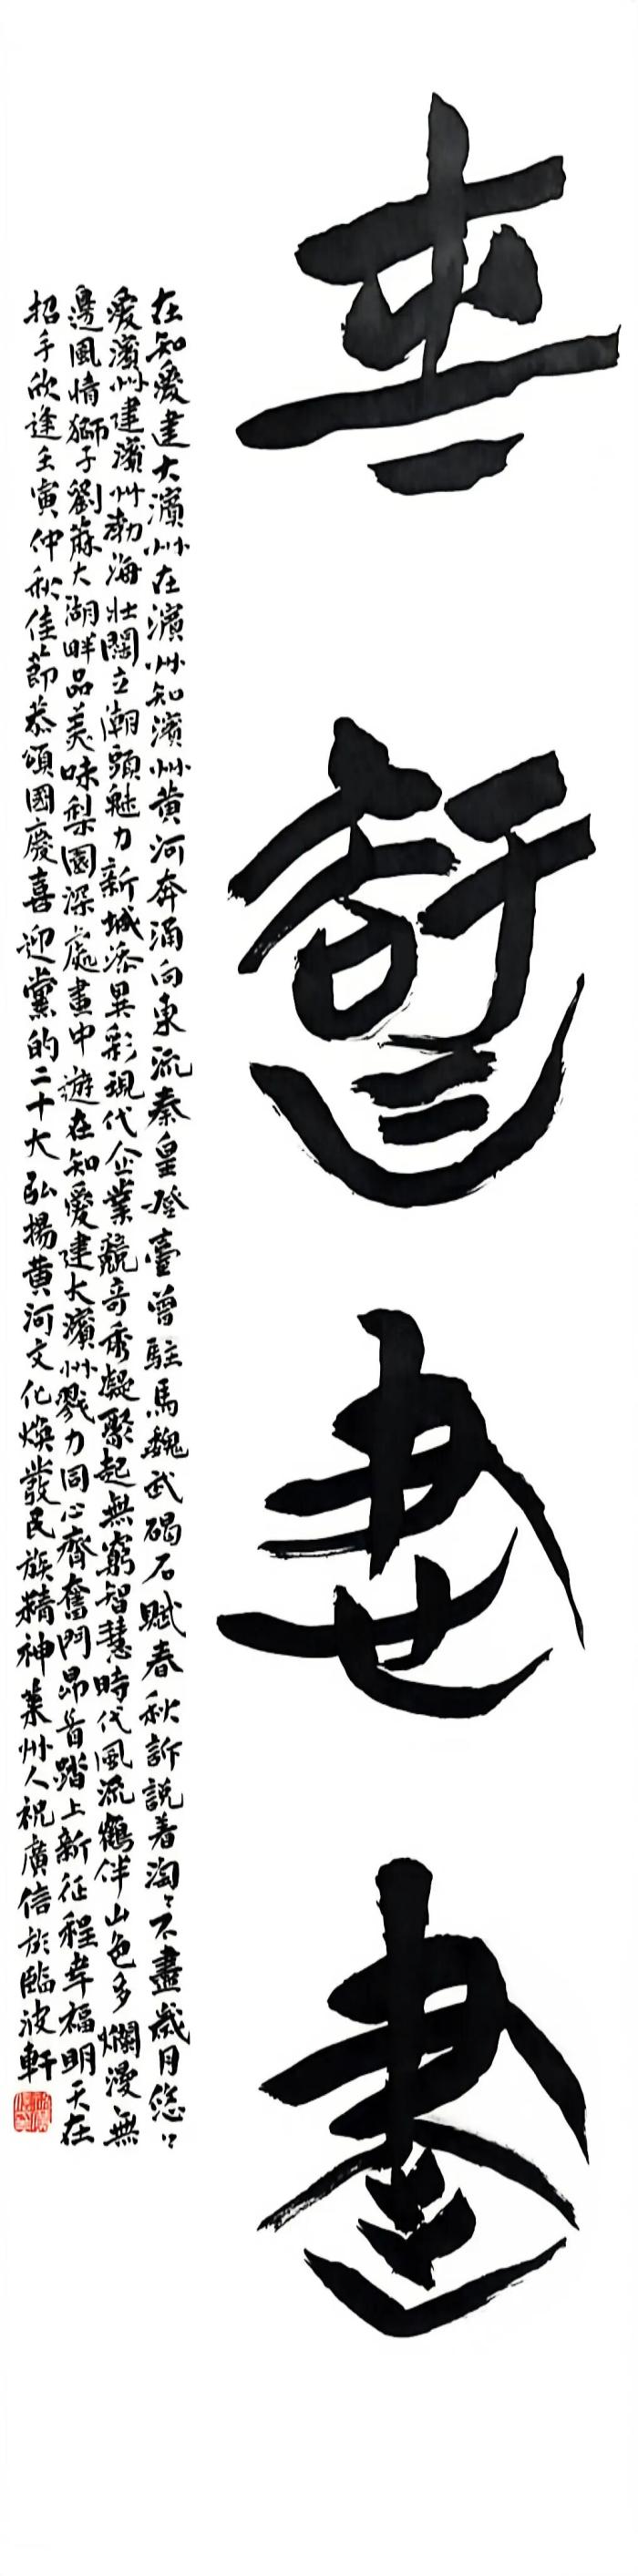 在知愛建大濱州在濱州知濱州黄河奔涌向東流秦皇登臺曾駐馬魏武碣石賦春秋訴説着淘〻不盡歲月悠〻
愛濱州建濱州勃海壯闊立潮頭魅力新城添異彩現代企業競奇秀凝聚起無窮智慧時代風流鶴伴山色多爛漫無
邊風情獅子劉大湖畔品美味梨園深處畫中遊在知愛建大濱州戮力同心齊奮鬥昂首踏上新征程幸福明天在
招手欣逢壬寅仲秋佳節恭頌國慶喜迎黨的二十大弘揚黄河文化煥發民族精神萊州人祝廣信於臨波軒